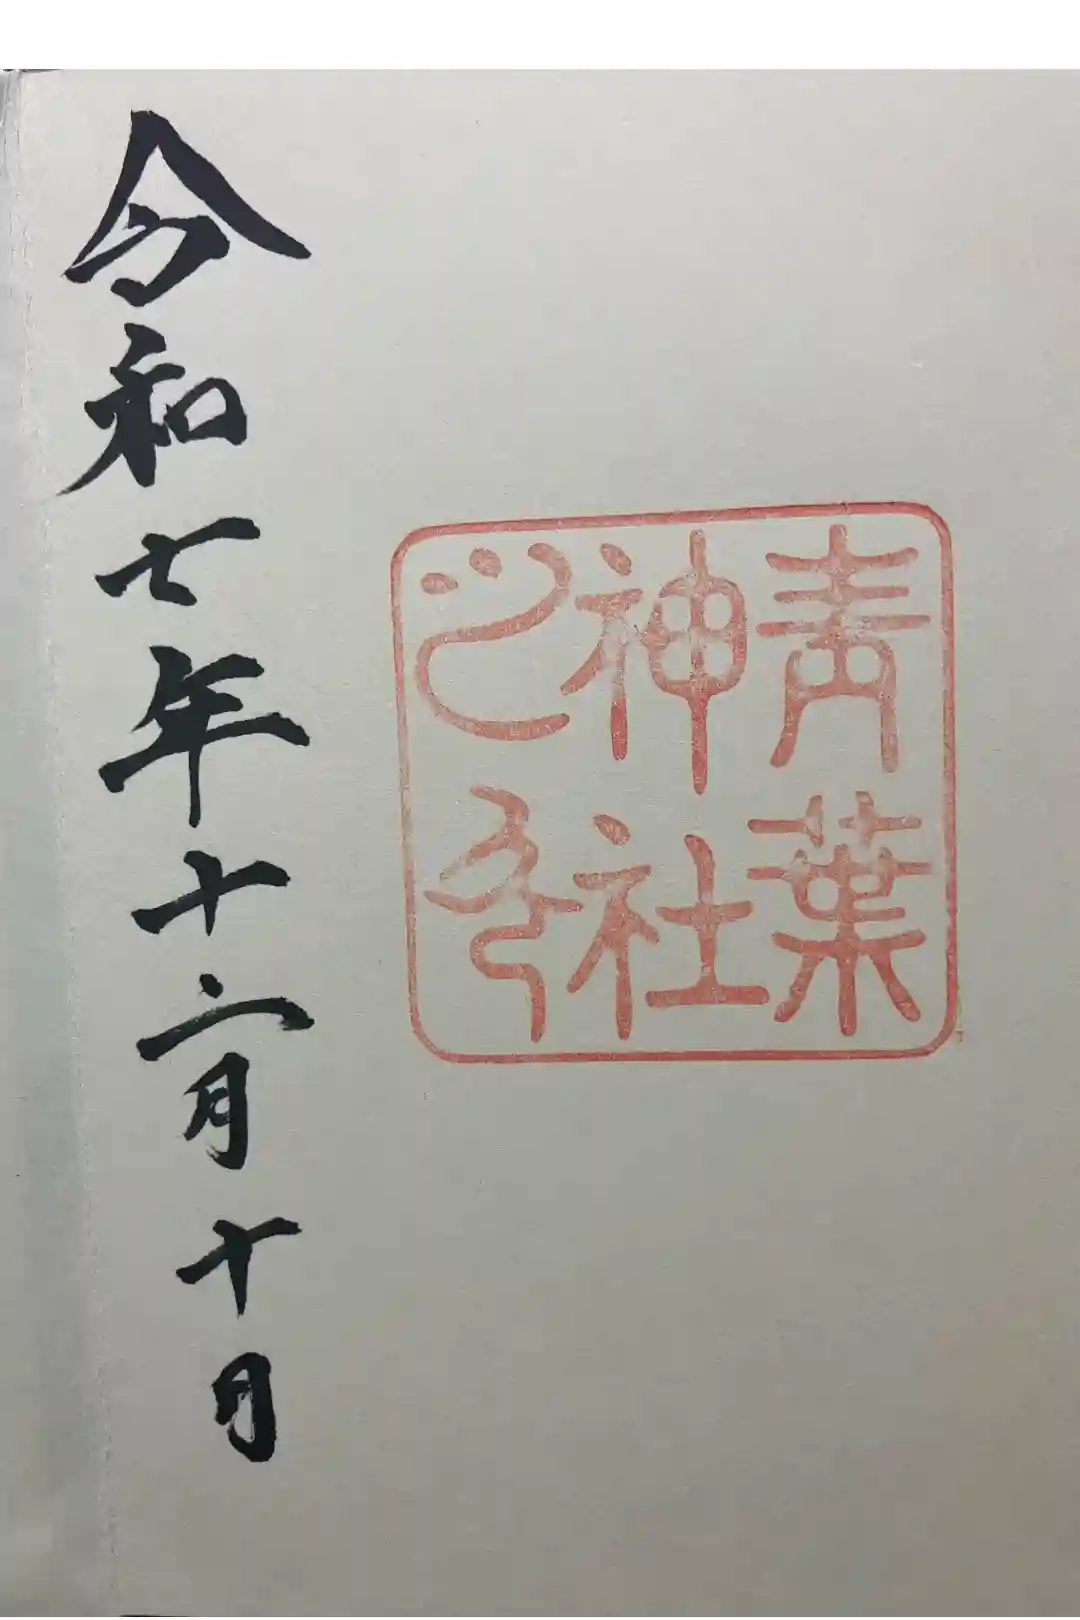 青葉
神社
之印
令和七年十二月十日